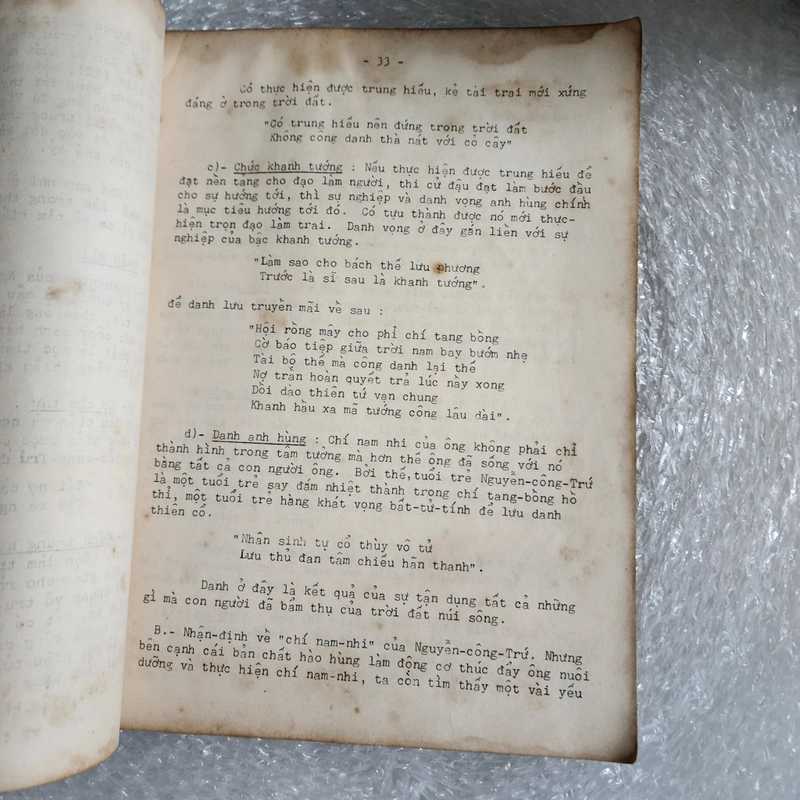 - 33 -
Có thực hiện được trung hiếu, kẻ tài trai mới xứng
đáng ở trong trời đất.
"Có trung hiếu nên đứng trong trời đất
Không công danh thà nát với cỏ cây"
c)- Chức khanh tướng : Nếu thực hiện được trung hiếu để
đạt nền tảng cho đạo làm người, thi cử đậu đạt làm bước đầu
cho sự hướng tới, thì sự nghiệp và danh vọng anh hùng chính
là mục tiêu hướng tới đó. Có tựu thành được nó mới thực-
hiện trọn đạo làm trai. Danh vọng ở đây gắn liền với sự
nghiệp của bậc khanh tướng.
"Làm sao cho bách thế lưu phương
Trước là sĩ sau là khanh tướng".
để danh lưu truyền mãi về sau :
"Hội rồng mây cho phỉ chí tang bồng
Cờ báo tiệp giữa trời nam bay bướm nhẹ
Tài bộ thế mà công danh lại thế
Nợ trần hoàn quyết trả lúc này xong
Dồi dào thiên tứ vạn chung
Khanh hầu xa mã tướng công lâu dài".
d)- Danh anh hùng : Chí nam nhi của ông không phải chỉ
thành hình trong tâm tưởng mà hơn thế ông đã sống với nó
bằng tất cả con người ông. Bởi thế,tuổi trẻ Nguyễn-công-Trứ
là một tuổi trẻ say đắm nhiệt thành trong chí tang-bồng hồ
thỉ, một tuổi trẻ hằng khát vọng bất-tử-tính để lưu danh
thiên cổ.
"Nhân sinh tự cổ thùy vô tử
Lưu thủ đan tâm chiếu hãn thanh".
Danh ở đây là kết quả của sự tận dụng tất cả những
gì mà con người đã bẩm thụ của trời đất núi sông.
B.- Nhận-định về "chí nam-nhi" của Nguyễn-công-Trứ. Nhưng
bên cạnh cái bản chất hào hùng làm động cơ thúc đẩy ông nuôi
dưỡng và thực hiện chí nam-nhi, ta còn tìm thấy một vài yếu